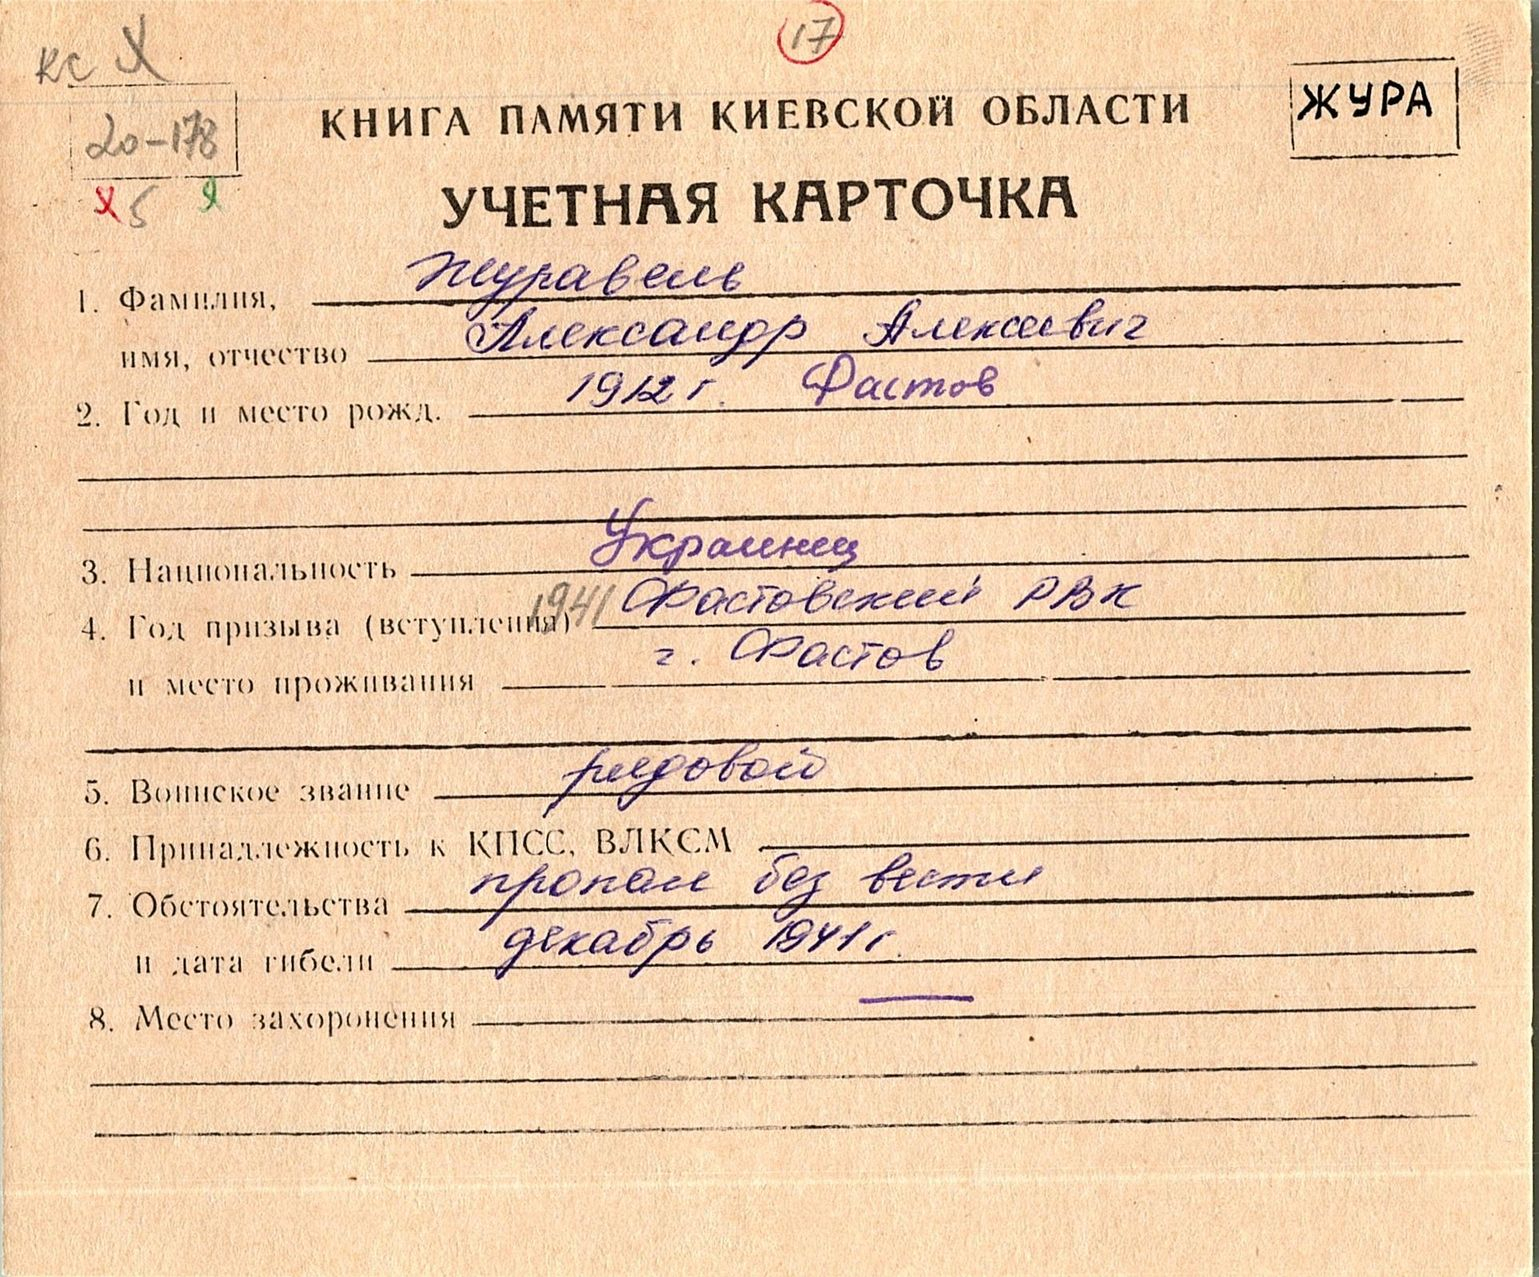 17
КС X
ЖУРА
20-178
КНИГА ПАМЯТИ КИЕВСКОЙ ОБЛАСТИ
X 5 Я
УЧЕТНАЯ КАРТОЧКА
1. Фамилия, Журавель
имя, отчество Александр Алексеевич
2. Год и место рожд. 1912 г. Фастов
3. Национальность Украинец
4. Год призыва (вступления) 1941 Фастовский РВК
и место проживания г. Фастов
5. Воинское звание рядовой
6. Принадлежность к КПСС, ВЛКСМ
7. Обстоятельства пропал без вести
и дата гибели декабрь 1941 г.
8. Место захоронения —